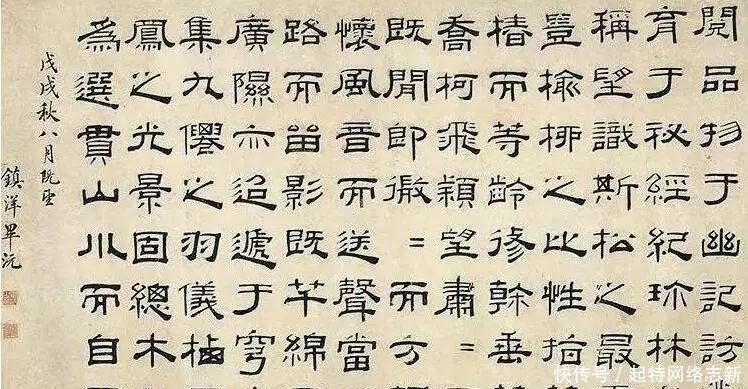 閱品物于幽記訪
育于秘經紀珎林
稱望識斯松之最
豈榆桺之比性指
椿而等齡修幹垂
喬柯飛穎望肅=
既閒即微=而方
懷風音而送聲當
路而留影既芊綿
廣隰亦迢遞于穹
集九僊之羽儀棲
鳳之光景固總木
為選貫山川而自
戊戌秋八月既望
鎮洋畢沅
快传号/起特网络志新